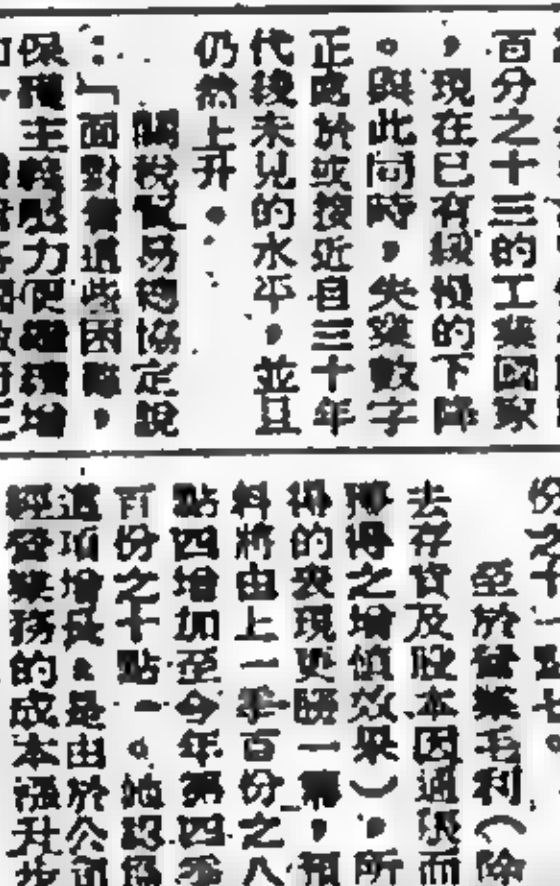 百分之十三的工業國家
，現在已有緩慢的下降
。與此同時，失業數字
正處於或接近自三十年
代後未見的水平，並且
仍然上升。
關稅貿易總協定說
：「面對着這些困難，
保護主義壓力便繼續增
份之十一點七。
至於營業毛利（除
去存貨及股本因通漲而
獲得之增值效果），所
得的表現更勝一籌，預
料將由上一季百份之八
點四增加至今年第四季
百份之十點一。他認為
這項增長，是由於公司
經營業務的成本漲升步